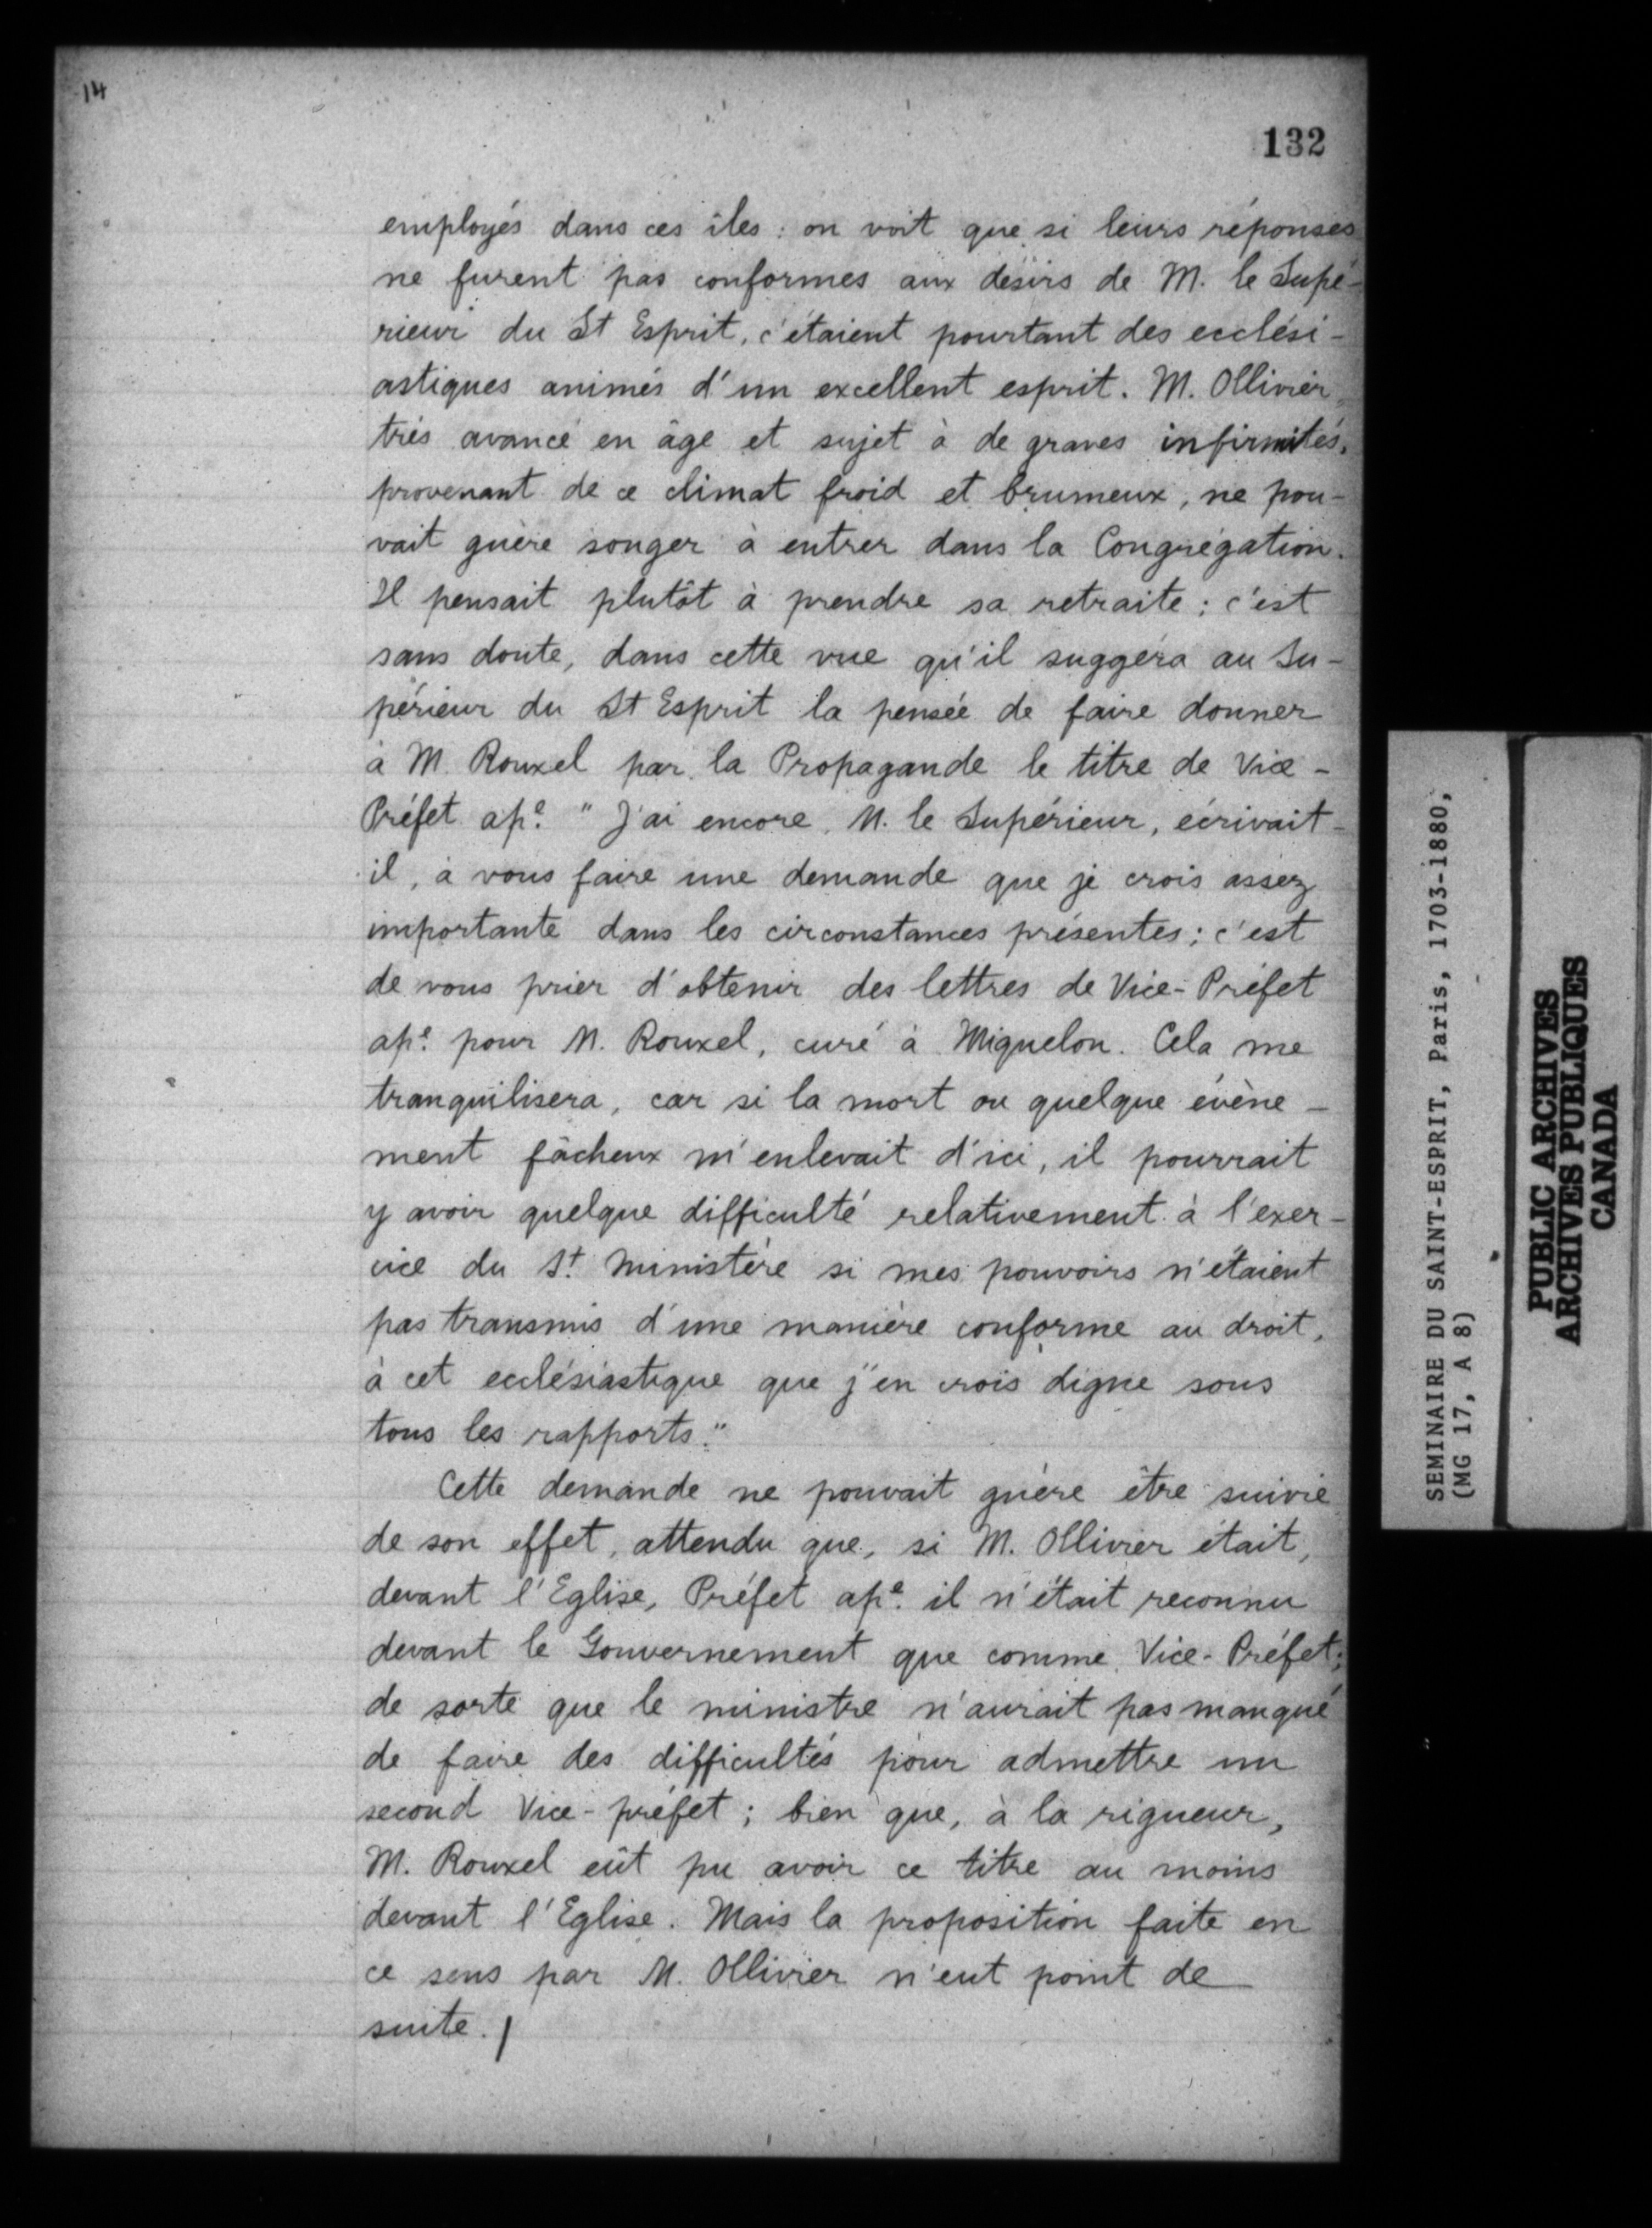 14
132
employés dans ces îles : on voit que si leurs réponses
ne furent pas conformes aux désirs de M. le Supé-
rieur du St Esprit, c'étaient pourtant des ecclési-
astiques animés d'un excellent esprit. M. Ollivier,
très avancé en âge et sujet à de graves infirmités,
provenant de ce climat froid et brumeux, ne pou-
vait guère songer à entrer dans la Congrégation.
Il pensait plutôt à prendre sa retraite ; c'est
sans doute, dans cette vue qu'il suggéra au Su-
périeur du St Esprit la pensée de faire donner
à M. Rouxel par la Propagande le titre de Vice-
Préfet ap.e " J'ai encore, M. le Supérieur, écrivait-
il, à vous faire une demande que je crois assez
importante dans les circonstances présentes ; c'est
de vous prier d'obtenir des lettres de Vice-Préfet
ap.e pour M. Rouxel, curé à Miquelon. Cela me
tranquilisera, car si la mort ou quelque évène-
ment fâcheux m'enlevait d'ici, il pourrait
y avoir quelque difficulté relativement à l'exer-
cice du St. Ministère si mes pouvoirs n'étaient
pas transmis d'une manière conforme au droit,
à cet ecclésiastique que j'en crois digne sous
tous les rapports."
Cette demande ne pouvait guère être suivie
de son effet, attendu que, si M. Ollivier était,
devant l'Eglise, Préfet ap.e il n'était reconnu
devant le Gouvernement que comme Vice-Préfet ;
de sorte que le ministre n'aurait pas manqué
de faire des difficultés pour admettre un
second Vice-préfet ; bien que, à la rigueur,
M. Rouxel eût pu avoir ce titre au moins
devant l'Eglise. Mais la proposition faite en
ce sens par M. Ollivier n'eut point de
suite. /
SEMINAIRE DU SAINT-ESPRIT, Paris, 1703-1880,
(MG 17, A 8)
PUBLIC ARCHIVES
ARCHIVES PUBLIQUES
CANADA